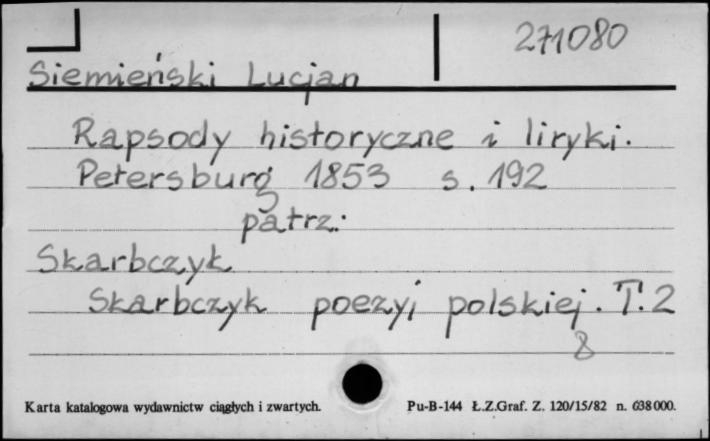 271080
Siemieński Lucjan
Rapsody historyczne i liryki.
Petersburg 1853 s. 192
patrz:
Skarbczyk
Skarbczyk poezyi polskiej. T. 2
8
Karta katalogowa wydawnictw ciągłych i zwartych. Pu-B-144 Ł.Z.Graf. Z. 120/15/82 n. 638000.